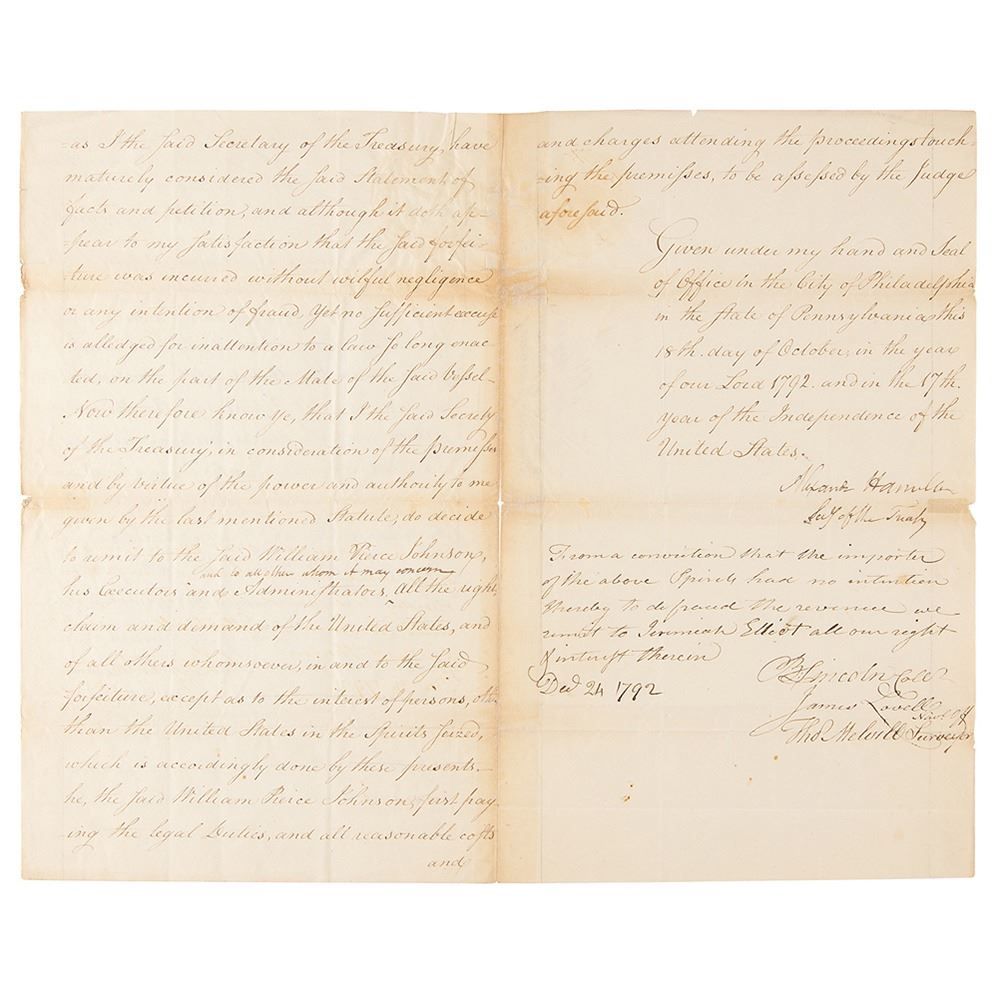 -as I the said Secretary of the Treasury, have
maturely considered the said Statement of
facts and petition, and although it doth ap-
-pear to my satisfaction that the said forfei-
-ture was incurred without wilful negligence
or any intention of fraud, Yet no sufficient excuse
is alledged for inattention to a law so long enac-
ted, on the part of the Mate of the said Vessel-
Now therefore know ye, that I the said Secrety
of the Treasury, in consideration of the premisses
and by virtue of the power and authority to me
given by the last mentioned Statute, do decide
to remit to the said William Pierce Johnson,
and to all other whom it may concern
his Executors and Administrators, all the right,
claim and demand of the United States, and
of all others whomsoever, in and to the said
forfeiture, except as to the interest of persons, oth
than the United States in the Spirits seized,
which is accordingly done by these presents.-
he, the said William Pierce Johnson, first pay-
ing the legal Duties, and all reasonable costs
and
and charges attending the proceedings touch-
-ing the premisses, to be assessed by the Judge
aforesaid.
Given under my hand and Seal
of Office in the City of Philadelphia
in the state of Pennsylvania this
18th. day of October, in the year
of our Lord 1792. and in the 17th.
Year of the Independence of the
United States.
Alexander Hamilton
Secy of the Treasy
From a conviction that the importer
of the above Spirits had no intention
thereby to defraud the revenue we
remit to Jeremiah Elliot all our right
& interest therein
Decr 24 1792
B Lincoln Collr
James Lovell Navl Off
Thos Melvill Surveyor